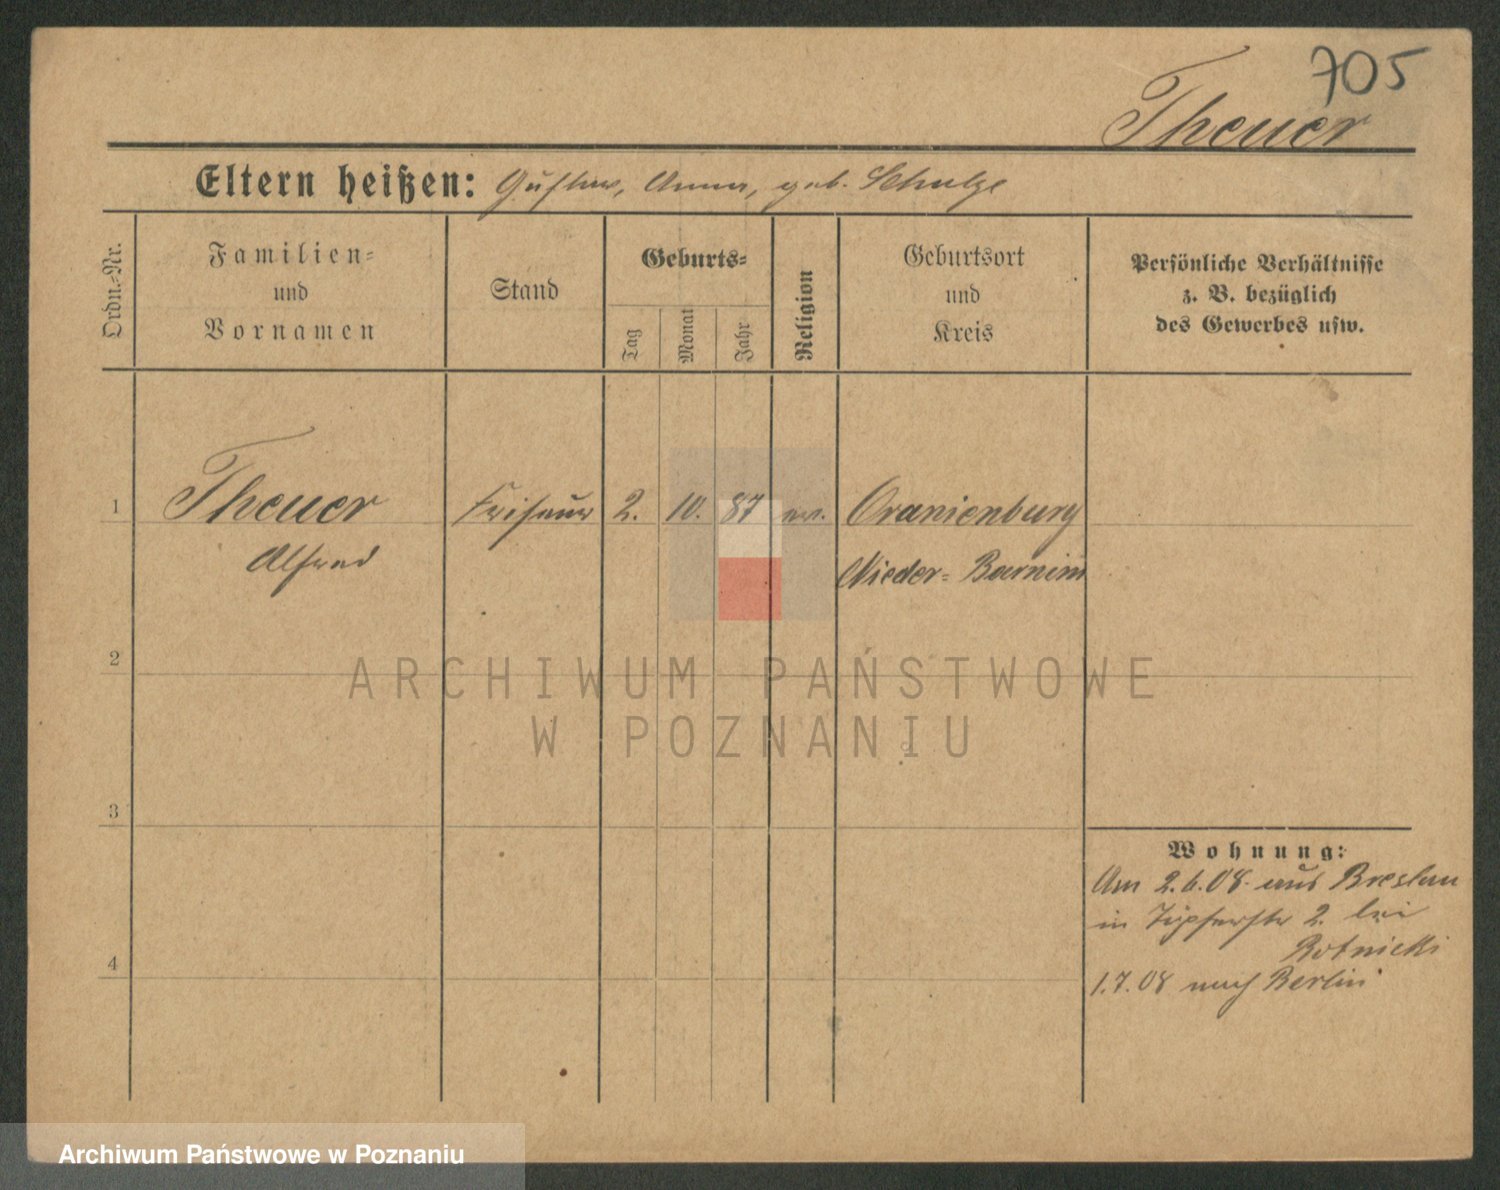 705
Theuer
Eltern heißen: Gustav, Anna, geb. Schulze
Ordn.-Nr.
Familien-
und
Vornamen
Stand
Geburts-
Tag
Monat
Jahr
Religion
Geburtsort
und
Kreis
Persönliche Verhältnisse
z. B. bezüglich
des Gewerbes usw.
1 Theuer Friseur 2. 10. 87 ev. Oranienburg
Alfred Nieder-Barnim
2
ARCHIWUM PAŃSTWOWE
W POZNANIU
3
Wohnung:
Am 2.6.08. aus Breslau
in Töpferstr 2. bei
Rotnicki
4
1.7.08 nach Berlin
Archiwum Państwowe w Poznaniu